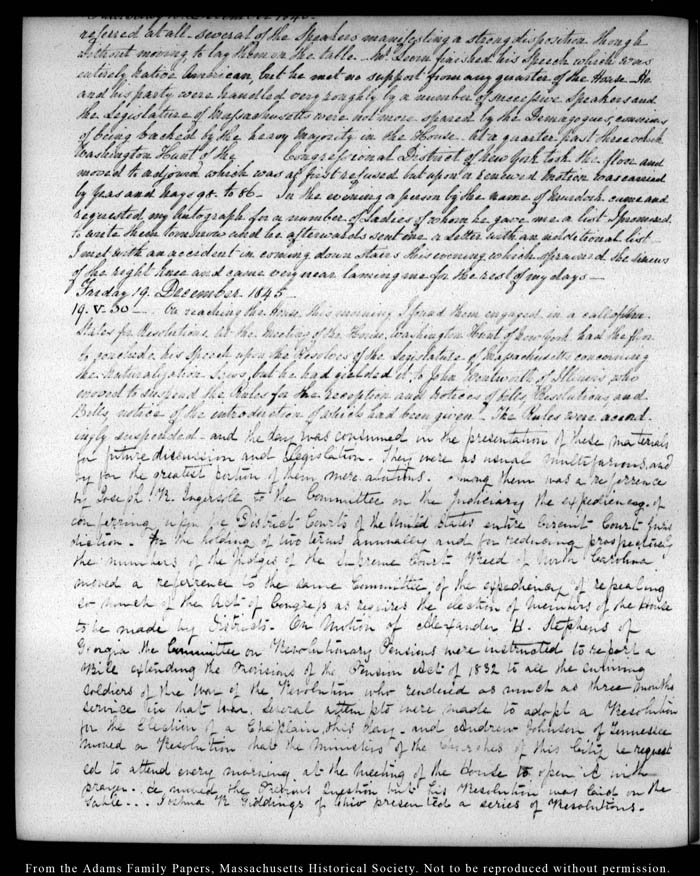 referred at all - several of the Speakers manifesting a strong disposition though
without moving to lay them on the table - Mr. Levin finished his Speech which was
entirely Native American, but he met no support from any quarter of the House - He
and his party were handled very roughly by a number of successive Speakers and
the Legislature of Massachusetts were not more spared by the Demagogues, conscious
of being backed by the heavy Majority in the House. At a quarter past three o'clock
Washington Hunt of the Congressional District of New York took the floor and
moved to adjourn which was at first refused but upon a renewed Motion was carried
by Yeas and Nays 98. to 86 - In the evening a person by the name of Murdock came and
requested my autograph for a number of Ladies of whom he gave me a list I promised
to write them tomorrow and he afterwards sent me a Letter with an additional list -
I met with an accident in coming down Stairs this evening which sprained the sinews
of the right knee and came very near laming me for the rest of my days -
Friday 19. December 1845 -
19. V. 30 - On reaching the House this morning I found them engaged in a call of the
States for Resolutions. At the Meeting of the House, Washington Hunt of New York had the floor
to conclude his Speech upon the Resolves of the Legislature of Massachusetts concerning
the Naturalization Laws, but he had yielded it to John Wentworth of Illinois, who
moved to suspend the Rules for the reception and Notices of bills, Resolutions, and
Bills, notice of the introduction of which had been given - The Rules were accord
ingly suspended - and the day was consumed in the presentation of these materials
for future discussion and Legislation. They were as usual multifarious, and
by far the greatest portion of them mere abortions. Among them was a referrence
by Joseph R. Ingersoll to the Committee on the Judiciary the expediency of
conferring upon the District Courts of the United States entire Circuit Court Juris
diction - for the holding of two terms annually and for reducing prospectively
the numbers of the Judges of the Supreme Court Reed of North Carolina
moved a referrence to the same Committee of the expediency of repealing
so much of the Act of Congress as requires the election of Members of the House
to be made by Districts - On Motion of Alexander H. Stephens of
Georgia the Committee on Revolutionary Pensions were instructed to report a
Bill extending the Provisions of the Pension Act of 1832 to all the surviving
soldiers of the War of the Revolution who rendered as much as three months
service in that War. Several attempts were made to adopt a Resolution
for the Election of a Chaplain this day - and Andrew Johnson of Tennessee
moved a Resolution that the Ministers of the Churches of this City be request
ed to attend every morning at the meeting of the House to open it with
prayer. He moved the Previous Question but his Resolution was laid on the
table... Joshua R Giddings of Ohio presented a series of Resolutions.
From the Adams Family Papers, Massachusetts Historical Society. Not to be reproduced without permission.